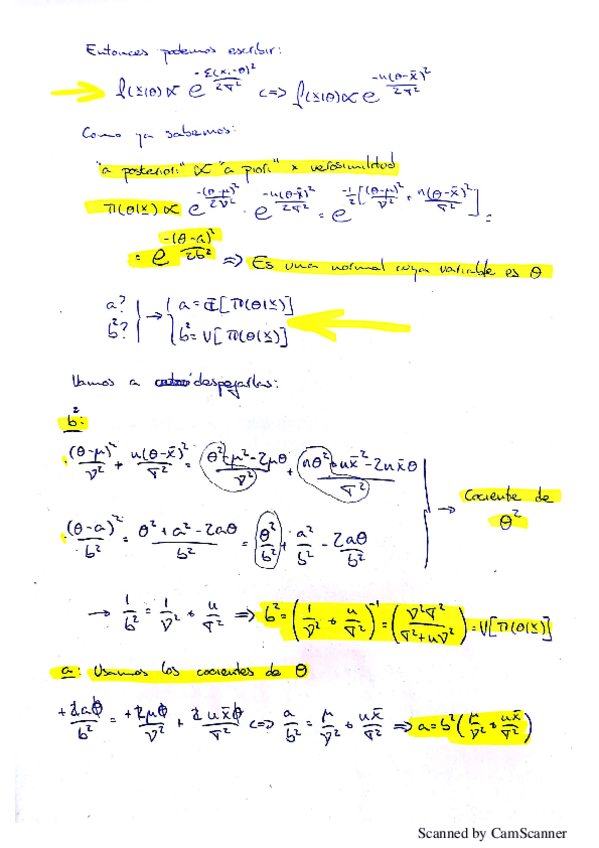 Entonces podemos escribir:
f(x|θ) ∝ e^{-Σ(xᵢ-θ)²/2σ²} <=> f(x|θ) ∝ e^{-n(θ-x̄)²/2σ²}
Como ya sabemos:
"a posteriori" ∝ "a priori" × verosimilitud
π(θ|x) ∝ e^{-(θ-μ)²/2ν²} · e^{-n(θ-x̄)²/2σ²} = e^{-1/2[(θ-μ)²/ν² + n(θ-x̄)²/σ²]} =
= e^{-(θ-a)²/2b²} => Es una normal cuya variable es θ
a? → a = E[π(θ|x)]
b²? b² = V[π(θ|x)]
Vamos a despejarlas:
b²:
· (θ-μ)²/ν² + n(θ-x̄)²/σ² = (θ²+μ²-2μθ)/ν² + (nθ²+nx̄²-2nx̄θ)/σ²
→ Cociente de θ²
· (θ-a)²/b² = (θ²+a²-2aθ)/b² = θ²/b² + a²/b² - 2aθ/b²
→ 1/b² = 1/ν² + n/σ² => b² = (1/ν² + n/σ²)⁻¹ = (ν²σ²/(σ²+nν²)) = V[π(θ|x)]
a: Usamos los cocientes de θ
+2aθ/b² = +2μθ/ν² + 2nx̄θ/σ² <=> a/b² = μ/ν² + nx̄/σ² => a = b²(μ/ν² + nx̄/σ²)
Scanned by CamScanner